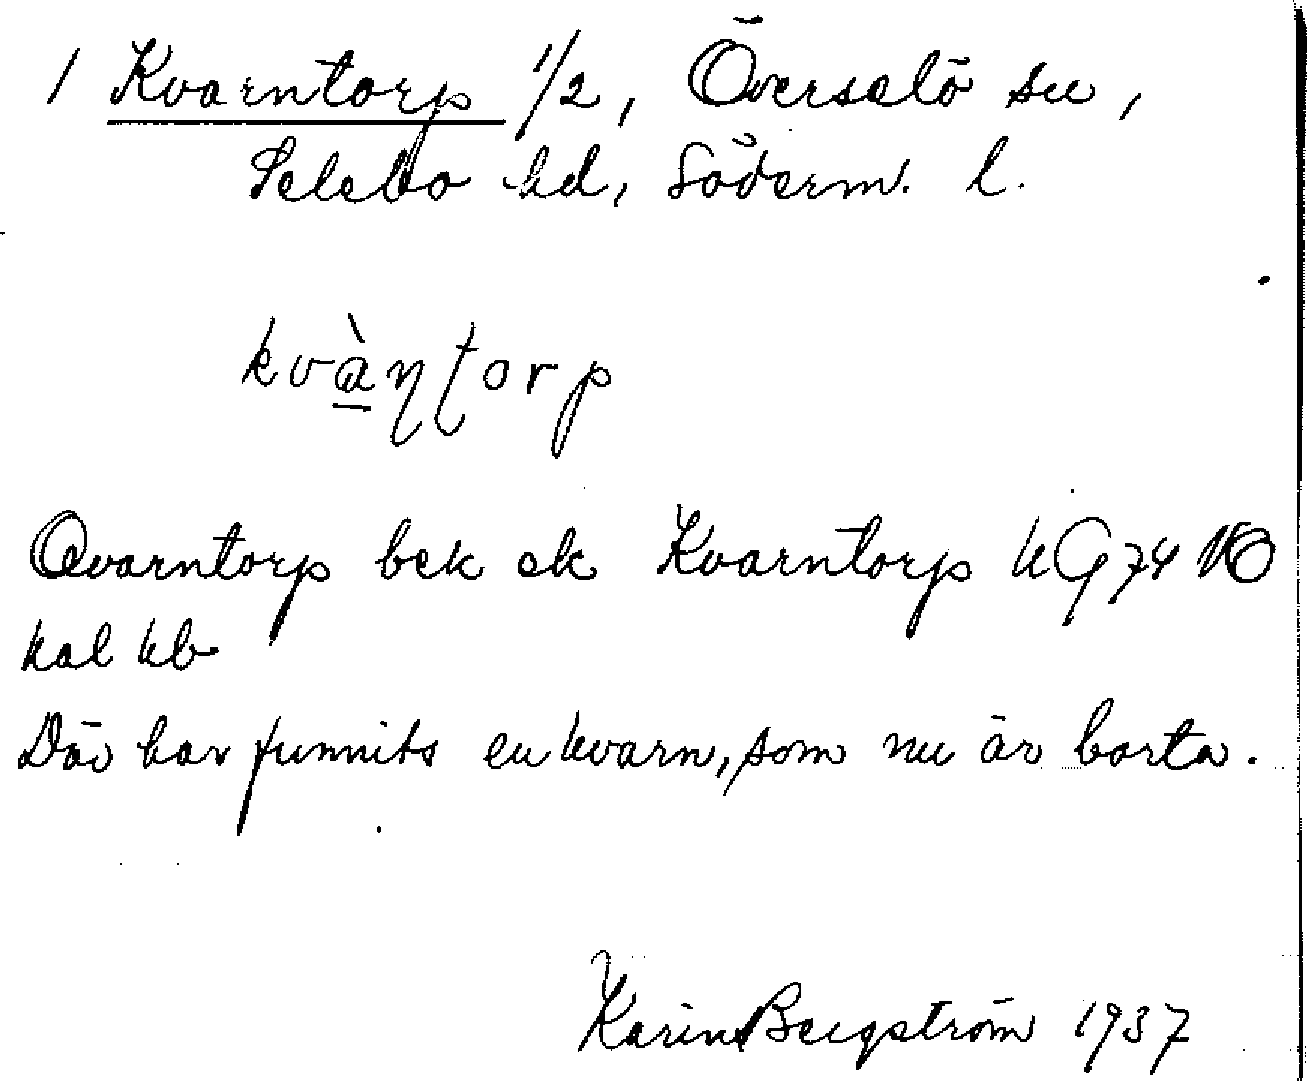 1 Kvarntorp 1/2, Överselö sn,
Selebo hd, Söderm. l.
kvàɳʈorp
Qvarntorp bek ek Kvarntorp kG 74 NO
kal kb
Där har funnits en kvarn, som nu är borta.
Karin Bergström 1937